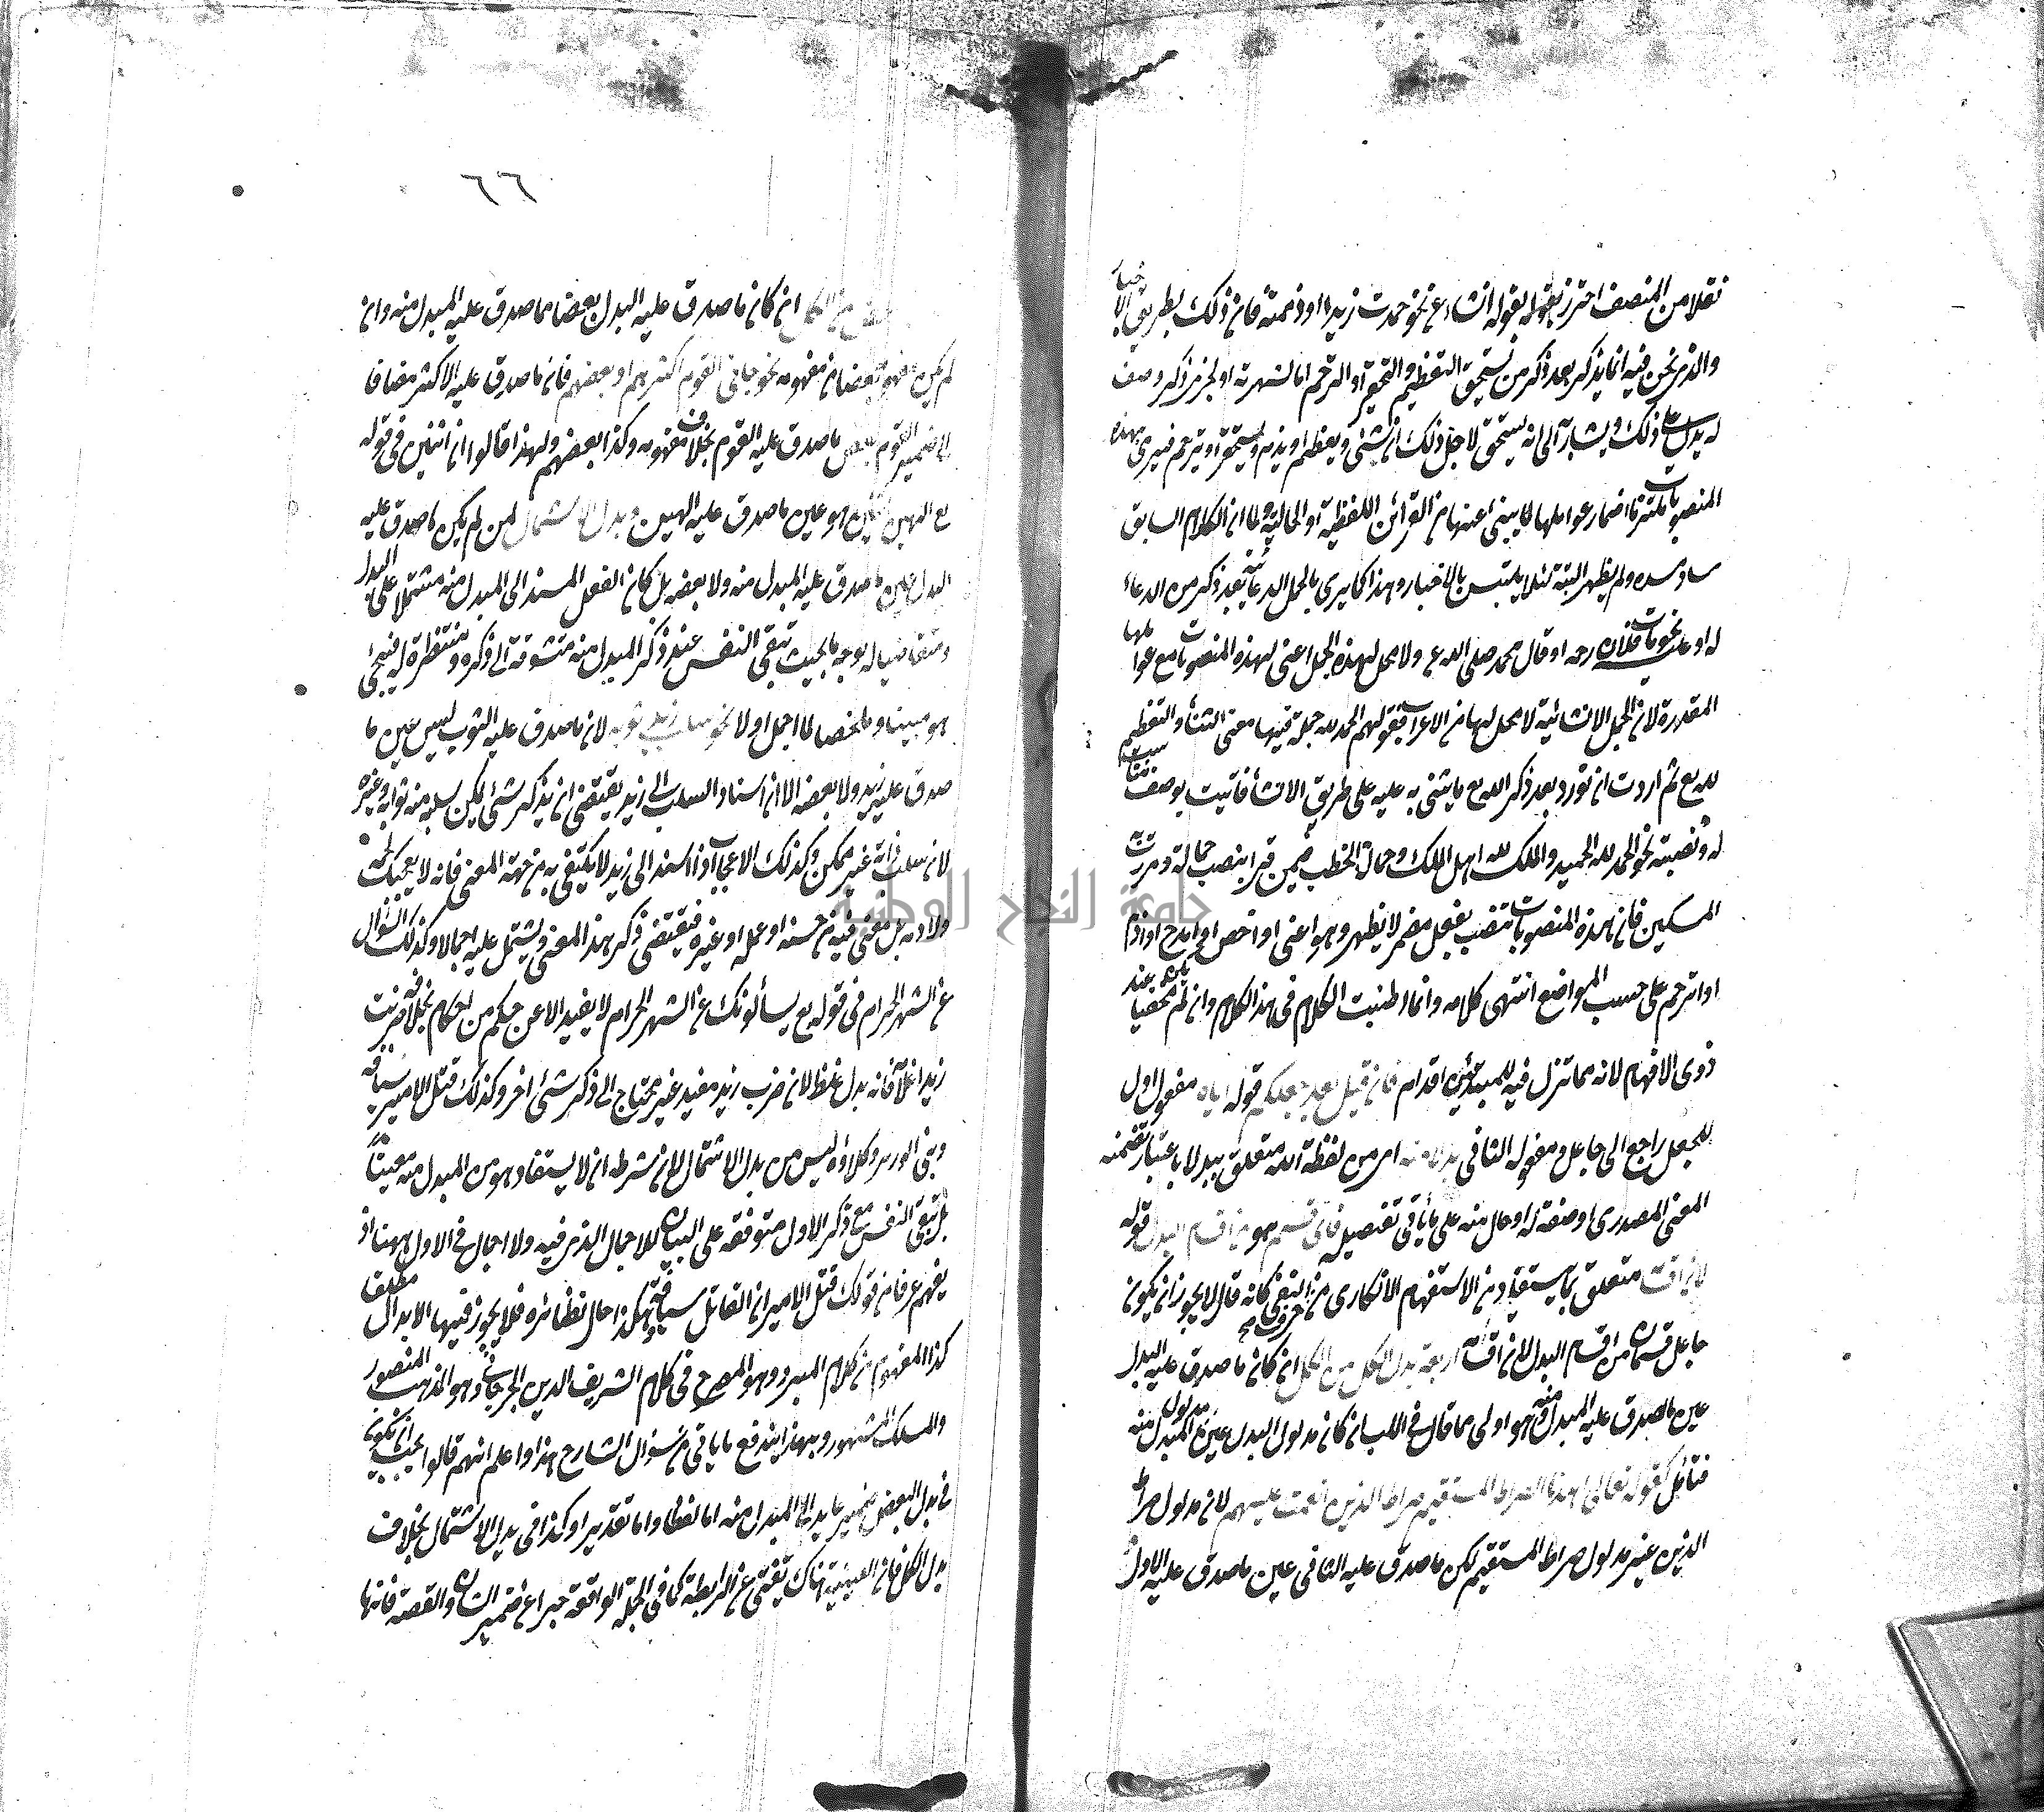 نقلا من المنصف احترز بقوله انشاء عن نحو حمدت زيدا او ذممته فان ذلك بطريق الاخبار
والذى نحن فيه انما يذكر بعد ذكر من يستحق التعظيم والتحقير او الترحم اما لشهرته او لجزء ذكر وصف
له يدل على ذلك ويشار الى انه يستحق لاجل ذلك ان يثنى ويعظم او يذم ويستحقر او يترحم فيرى بهذه
المنصوبات ملتزما اضمار عواملها لما يبنى اعنها من القرائن اللفظية او الحالية ولما ان الكلام السابق
ساد مسده ولم يظهر البتة لئلا يلتبس بالاخبار وهذا كما يرى بالجمل الدعائية بعد ذكر من الدعاء
له او عليه نحو مات فلان رحمه او قال محمد صلى الله ع ولا محل لهذه الجمل اعنى لهذه المنصوبات مع عواملها
المقدرة لان الجمل الانشائية لا محل لها من الاعراب فقولهم الحمد لله جملة فيها معنى الثناء والتعظيم
لله يع ثم اردت ان تورد بعد ذكر الله يع ما يثنى به عليه على طريق الانشاء فاتيت بوصف مناسب
له ونصبته نحو الحمد لله الحميد والملك لله اهل الملك وحمالة الحطب فيمن قرا بنصب حمالة ومررت به
المسكين فان هذه المنصوبات تنصب بفعل مضمر لا يظهر وهو اعنى او اخص او امدح او اذم
او اترحم على حسب المواضع انتهى كلامه وانما اطنبت الكلام فى هذا الكلام وان لم يكن مخفيا عند
ذوى الافهام لانه مما تنزل فيه للمبتدئين اقدام فان قيل بعد جعلكم قوله اياه مفعول اول
للجعل راجع الى جاعل ومفعوله الثانى بدلا منه اى من لفظة الله متعلق ببدلا باعتبار تضمنه
المعنى المصدرى او صفة له او حال منه على ما يأتى تفصيله فاى قسم هو من اقسام البدل قوله
لان اقت متعلق بما يستفاد من الاستفهام الانكارى من النفى كانه قال لا يجوز ان يكون
جاعل قسما من اقسام البدل لان اقسامه اربعة بدل الكل من الكل ان كان ما صدق عليه البدل
عين ما صدق عليه المبدل منه وهو اولى مما قال فى اللباب ان كان مدلول البدل عين مدلول المبدل منه
فتأمل كقوله تعالى اهدنا الصراط المستقيم صراط الذين انعمت عليهم لان مدلول صراط
الذين غير مدلول صراط المستقيم لكن ما صدق عليه الثانى عين ما صدق عليه الاول
٦٦
من الكل ان كان ما صدق عليه البدل بعضا مما صدق عليه المبدل منه وان
لم يكن مفهومه بعضا من مفهومه نحو جائنى القوم اكثرهم او بعضهم فان ما صدق عليه الاكثر مضافا
الى ضمير القوم بعض ما صدق عليه القوم بخلاف مفهومه وكذا بعضهم ولهذا قالوا ان اثنين فى قوله
يع الهين اثنين هو عين ما صدق عليه الهين وبدل الاشتمال لمن لم يكن ما صدق عليه
البدل عين ما صدق عليه المبدل منه ولا بعضه بل كان الفعل المسند الى المبدل منه مشتملا على البدل
ومتقاضيا له بوجه ما بحيث تبقى النفس عند ذكر المبدل منه متشوقة الى ذكره ومنتظرة له فيجئ
هو مبينا وملخصا لما اجمل اولا نحو سلب زيد ثوبه لان ما صدق عليه الثوب ليس عين ما
صدق عليه زيد ولا بعضه الا ان اسناد السلب الى زيد يقتضى ان يذكر شئ يمكن سلبه منه ثوابه وغيره
لان سلب ذاته غير ممكن وكذلك الاعجاب اذا اسند الى زيد لا يكتفى به من جهة المعنى فانه لا يعجبك لحمه
ولا دمه بل معنى فيه من حسنه او علمه او غيره فيقتضى ذكر هذا المعنى ويشتمل عليه اجمالا وكذلك السؤال
عن الشهر الحرام فى قوله يع يسألونك عن الشهر الحرام لا يفيد الا عن حكم من احكامه بخلاف ضربت
زيدا غلامه فانه بدل غلط لان ضرب زيد مفيد غير محتاج الى ذكر شئ اخر وكذلك قتل الامير سيافه
وبنى الوزير وكلاؤه ليس من بدل الاشتمال لان شرطه ان لا يستفاد هو من المبدل منه معينا
بل تبقى النفس مع ذكر الاول متوقفة على البيان للاجمال الذى فيه ولا اجمال فى الاول ههنا اذ
يفهم عرفا من قولك قتل الامير ان القاتل سيافه وهكذا حال نظائره فلا يجوز فيها الابدال مطلقا
كذا المفهوم من كلام المبرد وهو المصرح فى كلام الشريف الدين الجرجانى وهو المذهب المنصور
والمسلك المشهور وبهذا يندفع ما ياتى من سؤال الشارح هذا واعلم انهم قالوا يجب ان يكون
فى بدل البعض ضمير عايد الى المبدل منه اما لفظا واما تقديرا وكذا فى بدل الاشتمال بخلاف
بدل الكل فان العينية هناك تغنى عن الرابطة كما فى الجملة الواقعة خبرا عن ضمير الشان والقصة فانها
جامعة النجاح الوطنية